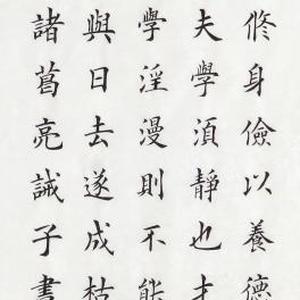 修身儉以養德
夫學須靜也才
學淫漫則不能
與日去遂成枯
諸葛亮誡子書